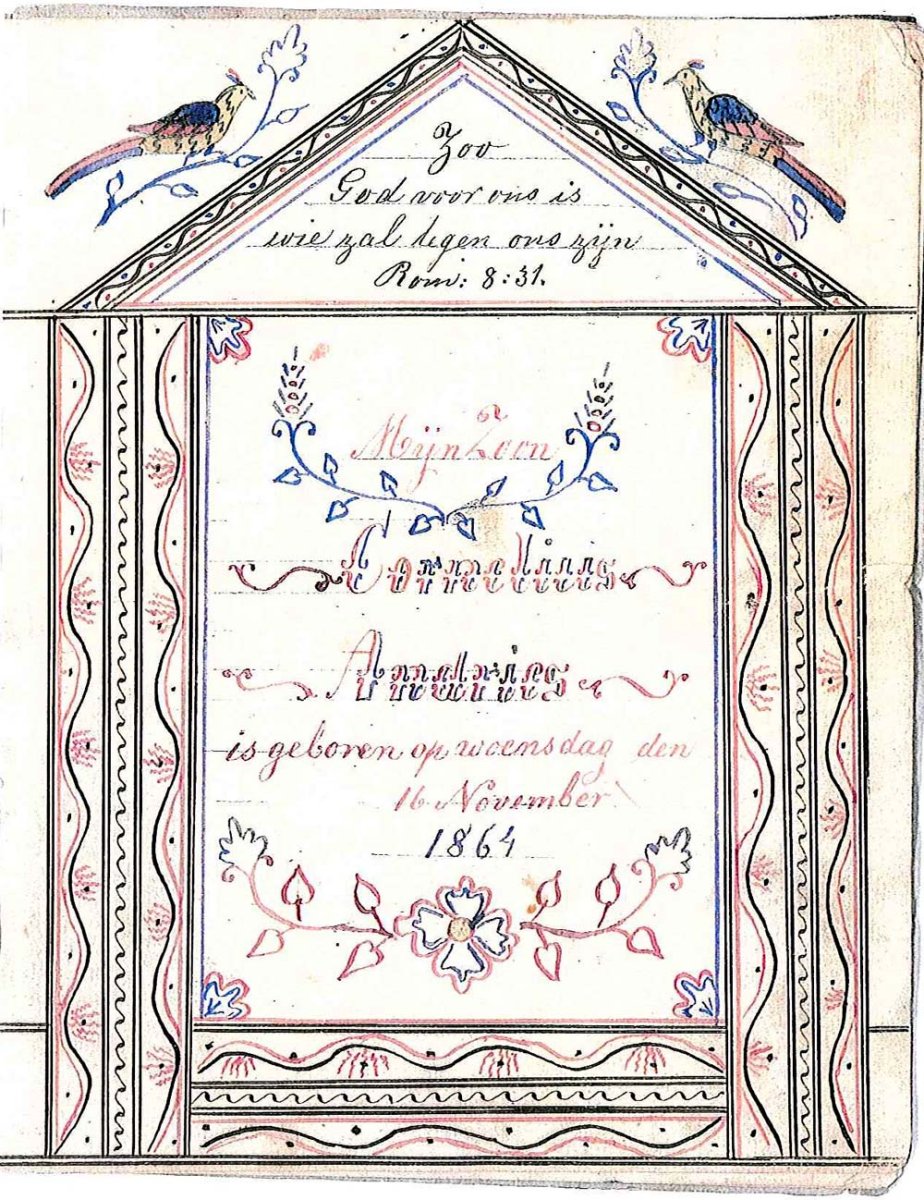 Zoo
God voor ons is
wie zal tegen ons zijn
Rom: 8:31.
Mijn Zoon
Cornelius
Andries
is geboren op woensdag den
16 November
1864